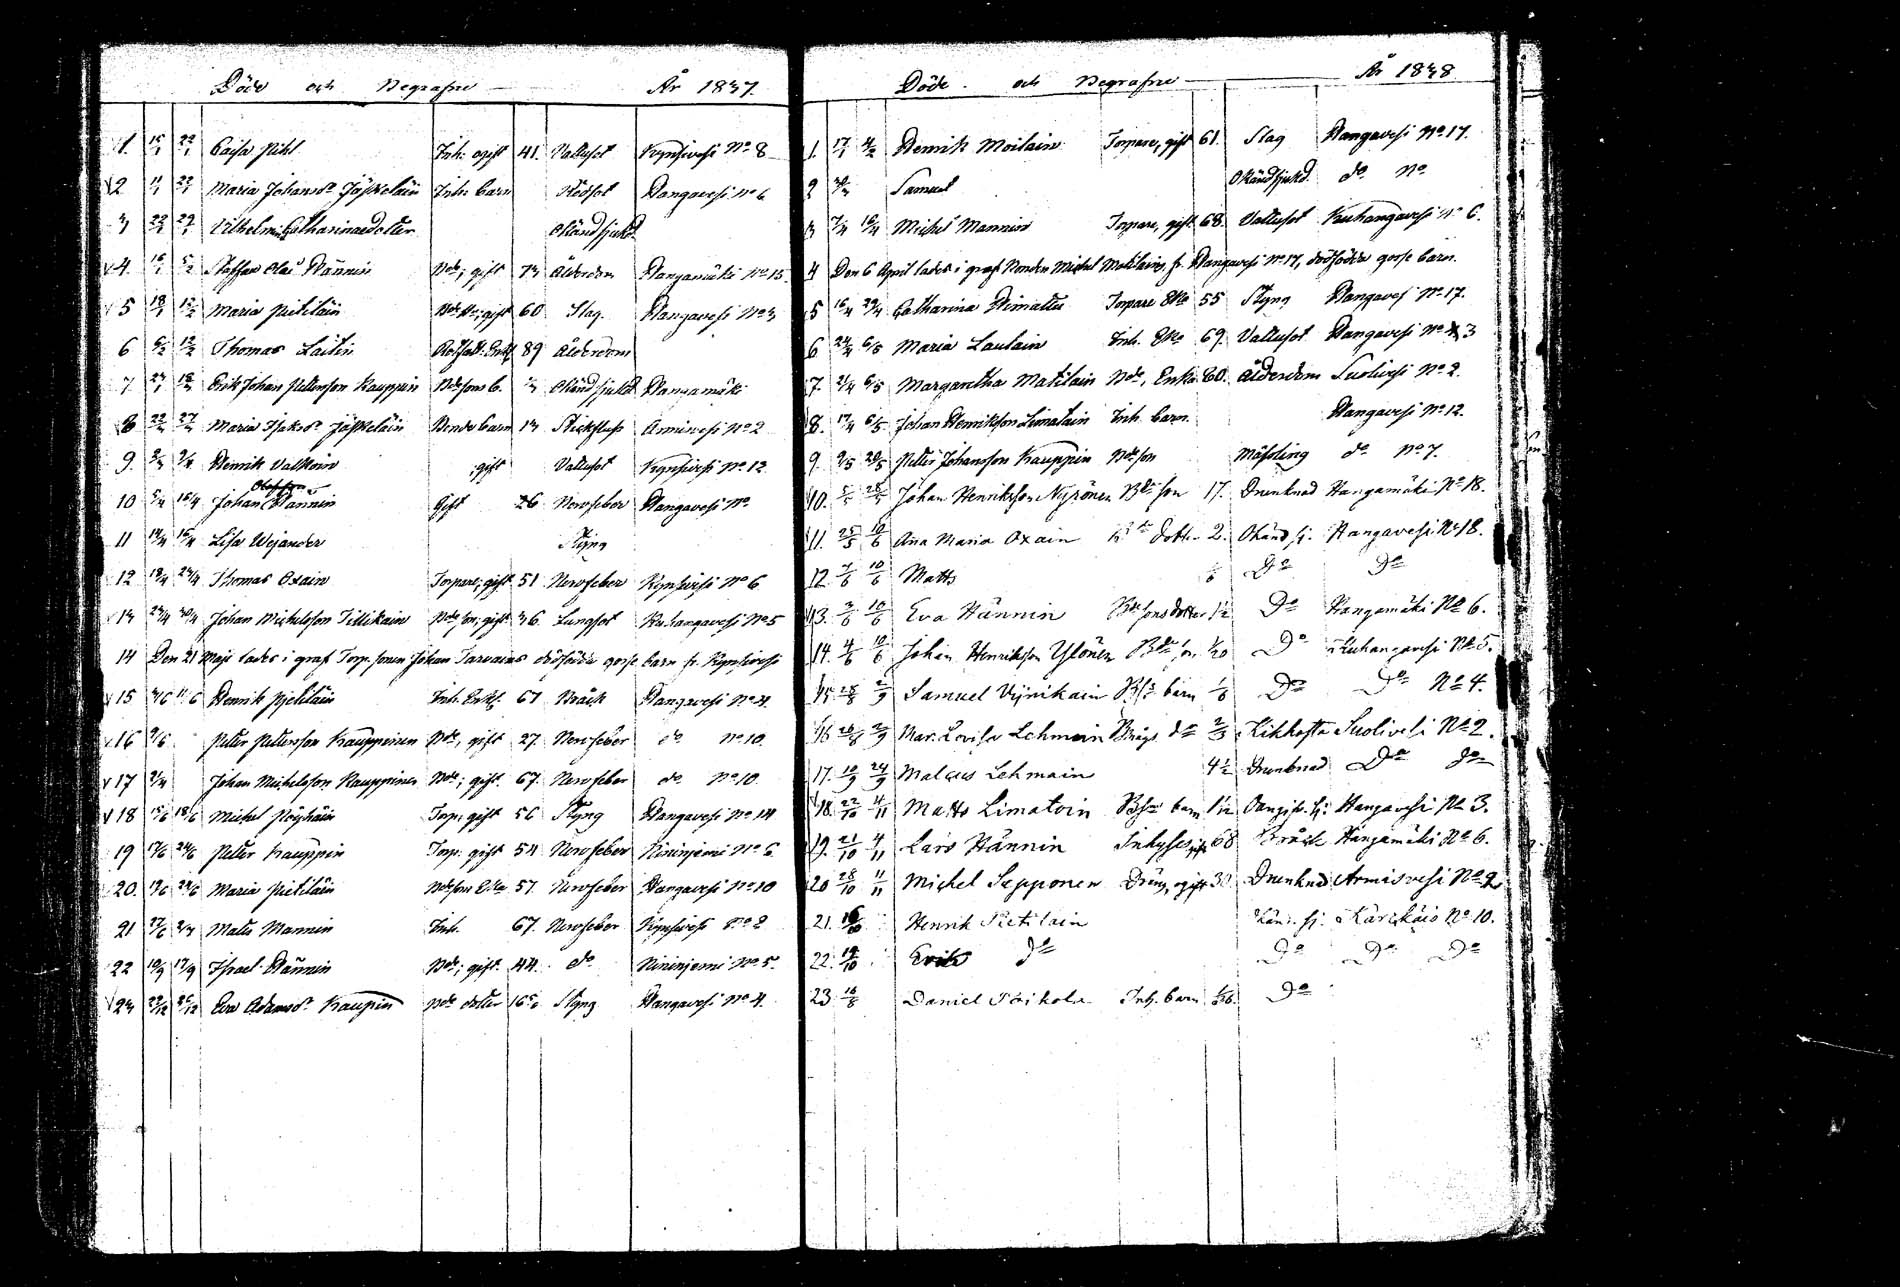 Döde och Begrafne År 1837
1. 15/1 22/1 Caisa Pihl Inh. ogift 41. Vattusot Kynsivesi No 8
2 11/1 22/1 Maria Johansdr Jäskeläin Inh. barn Rödsot Hangavesi No 6
3 22/1 29/1 Vilhelmina Catharinaedotter Okänd sjukd.
4. 16/1 5/2 Staffan Olai Hännin Bde; gift 73 Ålderdom Hangamäki No 15.
5 18/1 12/2 Maria Pietiläin gift 60 Slag. Hangavesi No 3
6 6/2 12/2 Thomas Laitin Enkl. 89 Ålderdom
7. 12/2 Erik Johan Petterson Kauppin Bdesons b. Okänd sjukd. Hangamäki
8 22/2 27/2 Maria Isaksdr Jäskeläin Bonde barn 13 Stickfluss Armisvesi No 2
9. Henrik Valkoin gift Vattusot Kynsivesi No 12
10 16/4 Johan Olofson Hännin Gift 26 Nervfeber Hangavesi No
11 16/4 Lisa Wejander Styng
12 18/4 23/4 Thomas Oxain Torpare; gift 51 Nervfeber Kynsivesi No 6
13 23/4 30/4 Johan Michelsson Tillikain Bdeson; gift 36 Lungsot Kuhangavesi No 5
14 Den 21 Maji lades i graf Torp. sonen Johan Tarvains dödfödda gosse barn fr. Kynsivesi
15 11/6 Henrik Pietiläin Inh. Enkl. 67 Bråck Hangavesi No 4.
16 9/6 Petter Petterson Kauppinen Bde, gift 27 Nervfeber do No 10.
17 2/4 Johan Michelsson Kauppinen Bde; gift. 67. Nervfeber do No 10
18 15/6 18/6 Michel Pöyhöin Torp; gift 56 Styng Hangavesi No 14
19 24/6 Petter Kauppin Torp. gift 54 Nervfeber Nininjemi No 6
20. 19/6 24/6 Maria Pietiläin Bdeson Enka 57. Nervfeber Hangavesi No 10
21 27/6 2/7 Matts Mannin Inh. 67. Nervfeber Kynsivesi No 2
22 10/9 17/9 Israel Hännin Bde; gift. 44. do Nininjemi No 5.
23 22/12 25/12 Eva Adamsdr Kaupin Bde dotter 16 Styng Hangavesi No 4.
Döde och Begrafne År 1838
1. 17/1 4/2 Henrik Moilain Torpare, gift 61. Slag Hangavesi No 17.
2 Samuel Okänd sjukd. do No
3 7/4 16/4 Michel Mannin Torpare, gift. 68. Vattusot Kuuhangavesi No 6.
4 Den 6 April lades i graf Bonden Michel Matilains fr. Hangavesi No 17, dödfödda gosse barn.
5 16/4 29/4 Catharina Himattu Torpare Eka 55 Styng Hangavesi No 17.
6 24/4 6/5 Maria Laulain Inh. Eka 69. Vattusot Hangavesi No 3
7. 2/4 6/5 Margaretha Matilain Bde, Enka 80. Ålderdom Suolivesi No 2.
8. 17/4 6/5 Johan Henriksson Limatain Inh. barn. Hangavesi No 12.
9. 9/5 20/5 Petter Johansson Kauppin Bdeson Mässling do No 7.
10. Johan Henriksson Nyrönen Bde son 17. Drunknad Hangamäki No 18.
11. 25/5 10/6 Ana Maria Oxain Bde dott. 2. Okänd sj. Hangavesi No 18.
12. 7/6 10/6 Matts Do Do
13. 3/6 10/6 Eva Hännin Bde sons dotter 1½ Do Hangamäki No 6.
14. 4/6 10/6 Johan Henriksson Ylönen Bde son 1/20 Do Kuhangavesi No 5.
15. 28/8 2/9 Samuel Vijnikain barn 1/8 Do Do No 4.
16 26/8 2/9 Mar. Lovisa Lehmoin dr 2/3 Kikhosta Suolivesi No 2.
17. 19/9 24/9 Malcus Lehmain 4½ Drunknad Do Do
18. 22/10 4/11 Matts Limatoin barn 1 1/12 sj. Hangavesi No 3.
19. 21/10 4/11 Lars Hännin Inhyses gift 68 Bråck Hangamäki No 6.
20 28/10 11/11 Michel Sepponen Dräng, ogift 30 Drunknad Armisvesi No 2
21. 16/10 Henrik Pietilain Okän. sj. Kärckäis No 10.
22. 14/10 Erik Do Do Do Do
23. 16/8 Daniel Poikola Inh. barn Do